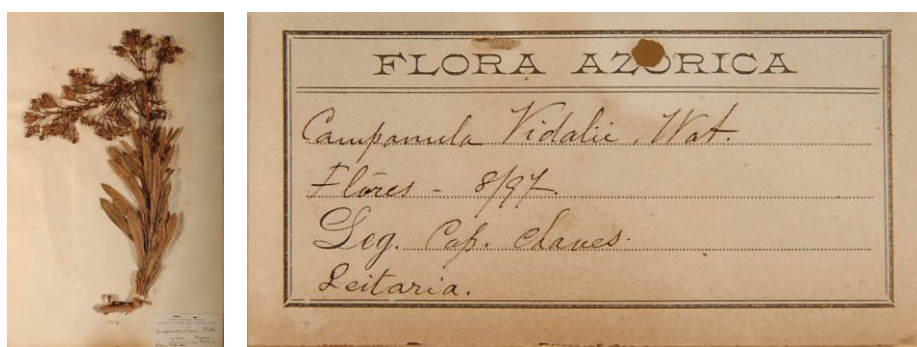 FLORA AZORICA
Campanula Vidalii, Wat.
Flôres - 8/97.
Leg. Cap. Chaves.
Leitaria.